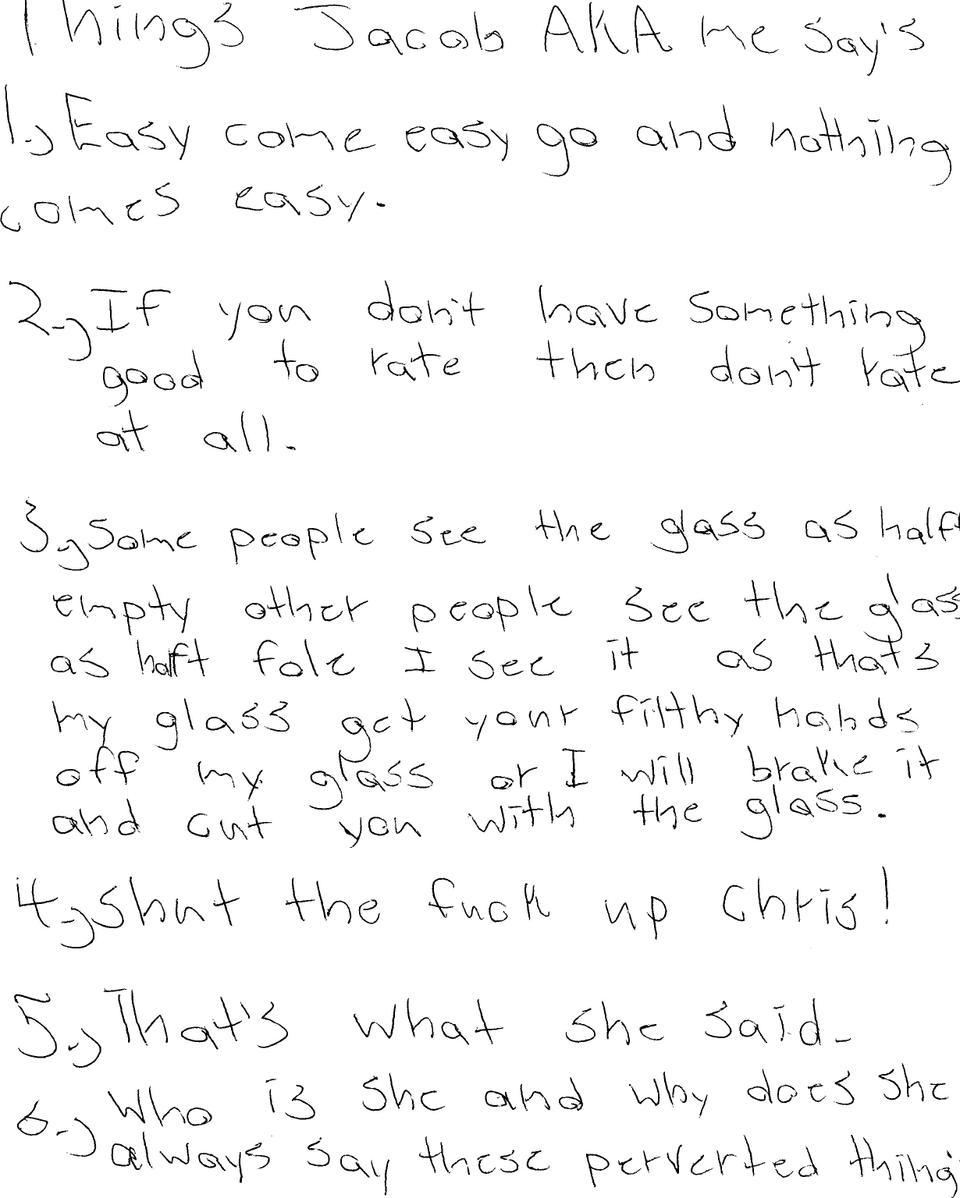 Things Jacob AKA me say's
1.) Easy come easy go and nothing
comes easy.
2.) If you don't have something
good to rate then don't rate
at all.
3.) Some people see the glass as half
empty other people see the glass
as halft fole I see it as that's
my glass get your filthy hands
off my glass or I will brake it
and cut you with the glass.
4.) Shut the fuck up Chris!
5.) That's what she said.
6.) Who is she and why does she
always say these perverted thing